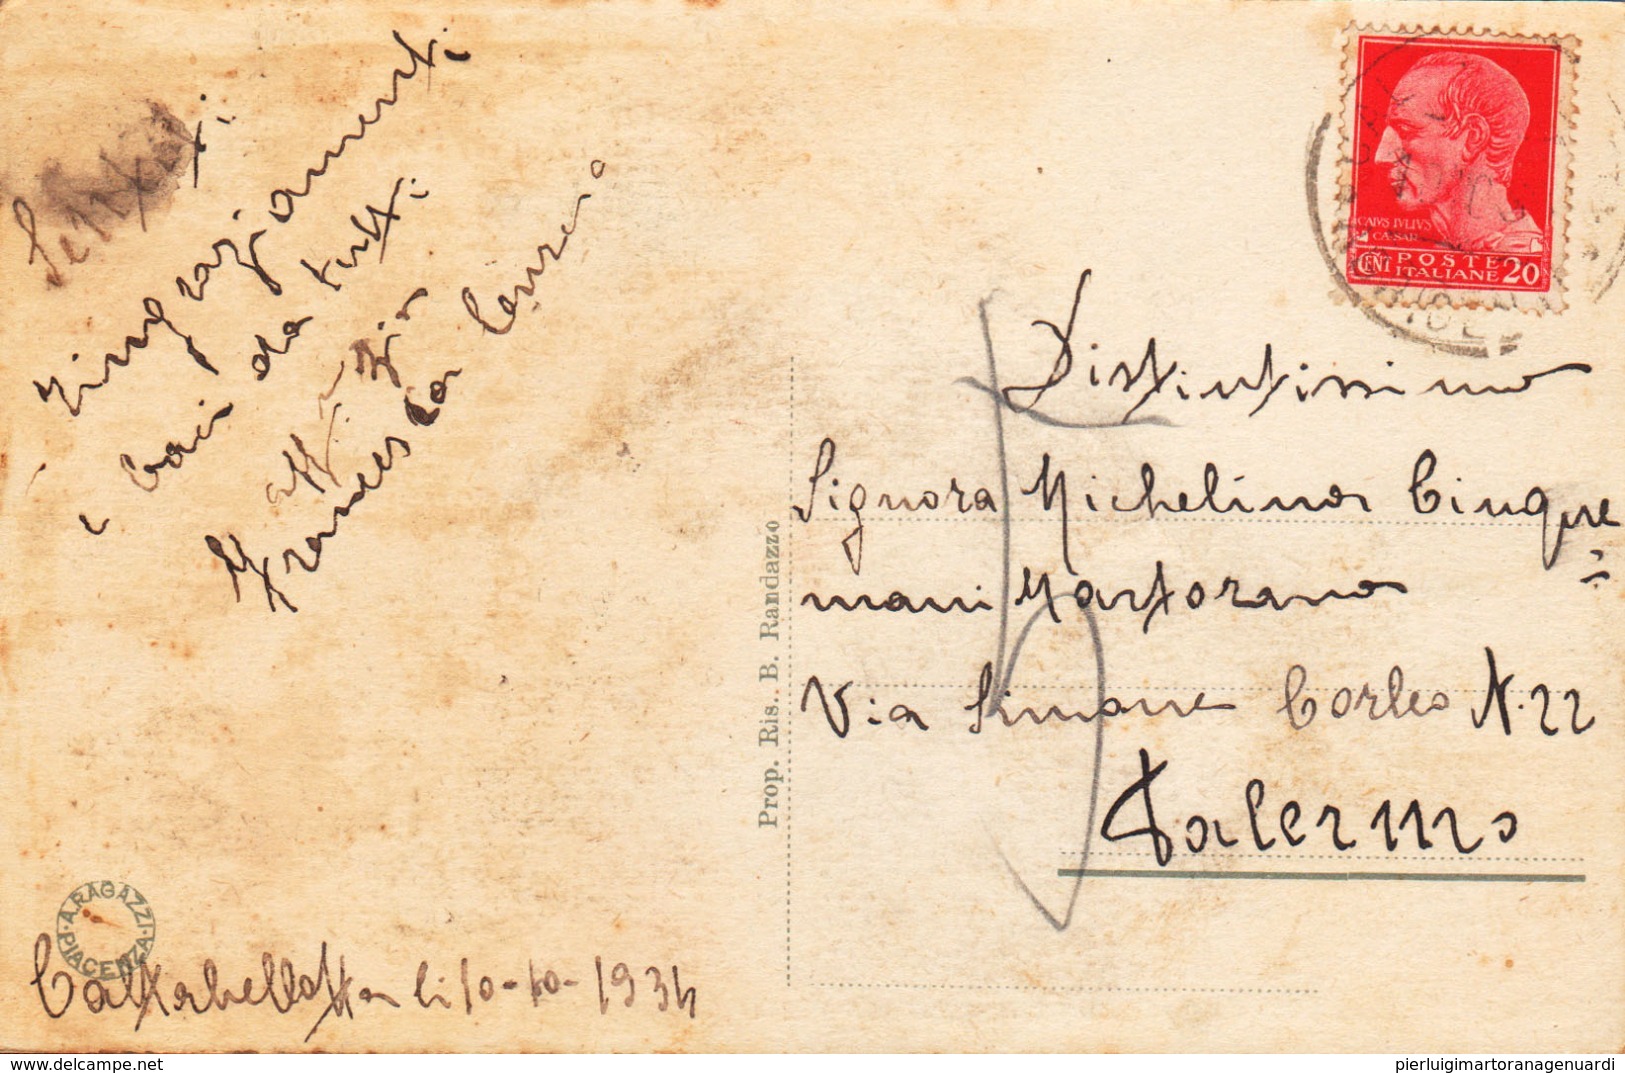 Sentiti
ringraziamenti
e baci da tutti
aff. zia
Francesca
Prop. Ris. B. Randazzo
A. RAGAZZI
PIACENZA
Caltabellotta li 10-10-1934
CAIVS IVLIVS
CAESAR
POSTE
CENT ITALIANE 20
Distintissima
Signora Michelina Cinque
mani Martorana
Via Simone Corleo N. 22
Palermo
delcampe.net
pierluigimartoranagenuardi